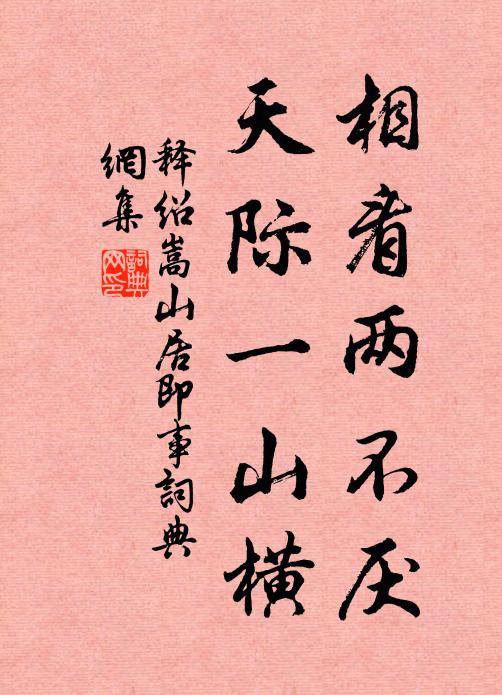 相看两不厌
天际一山横
释绍嵩山居即事词典
網集
詞典网印